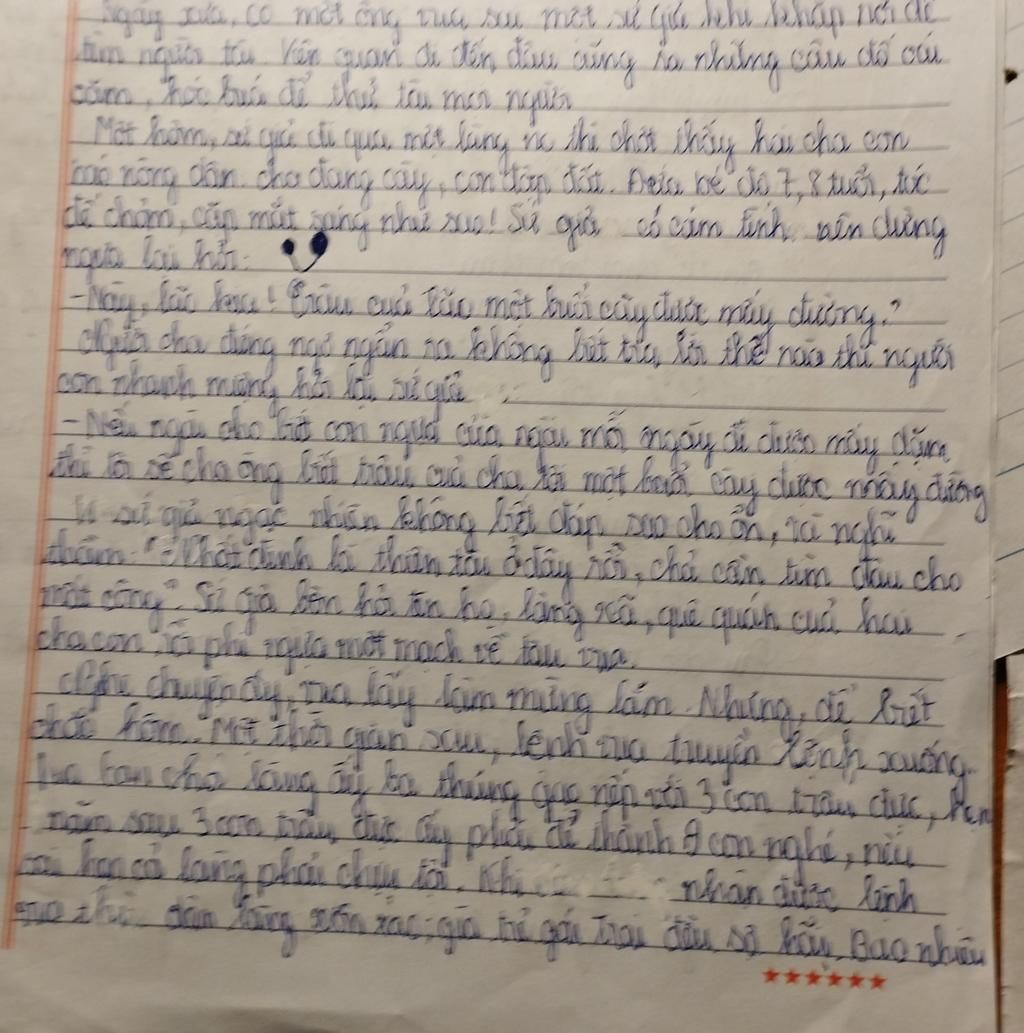 Ngày xưa, có một ông vua sai một sứ giả khi khắp nơi để
tìm người tài. Viên quan đi đến đâu cũng ra những câu đố oái
oăm, hóc búa để thử tài mọi người
Một hôm, sứ giả đi qua một làng nọ thì chợt thấy hai cha con
nông dân. cha đang cày, con đập đất. Đứa bé độ 7, 8 tuổi, tóc
để chỏm, cặp mắt sáng như sao! Sứ giả có cảm tình nên dừng
ngựa lại hỏi:
- Này, lão kia! Trâu của lão một buổi cày được mấy đường?
Người cha đứng ngơ ngẩn ra không biết trả lời thế nào thì người
con nhanh miệng hỏi lại sứ giả
- Nếu ngài cho biết con ngựa của ngài mỗi ngày đi được mấy dặm,
thì tôi sẽ cho ông biết trâu của cha tôi một buổi cày được mấy đường
sứ giả ngạc nhiên không biết đáp sao cho ổn, rồi nghĩ
thầm: "- Nhất định là thiên tài ở đây rồi, chả cần tìm đâu cho
mất công". Sứ giả bèn hỏi tên họ, làng xã, quê quán của hai
cha con rồi phi ngựa một mạch về tâu vua.
Nghe chuyện ấy, vua lấy làm mừng lắm. Nhưng, để biết
hôm. Một thời gian sau, lệnh vua truyền lệnh xuống
ban cho làng ấy ba thúng gạo nếp với 3 con trâu đực, hẹn
năm sau 3 con trâu đực ấy phải đẻ thành 9 con nghé, nếu
cả làng phải chịu tội. Khi nhận được lệnh
vua thì dân làng xôn xao, già trẻ gái trai đều sợ hãi. Bao nhiêu